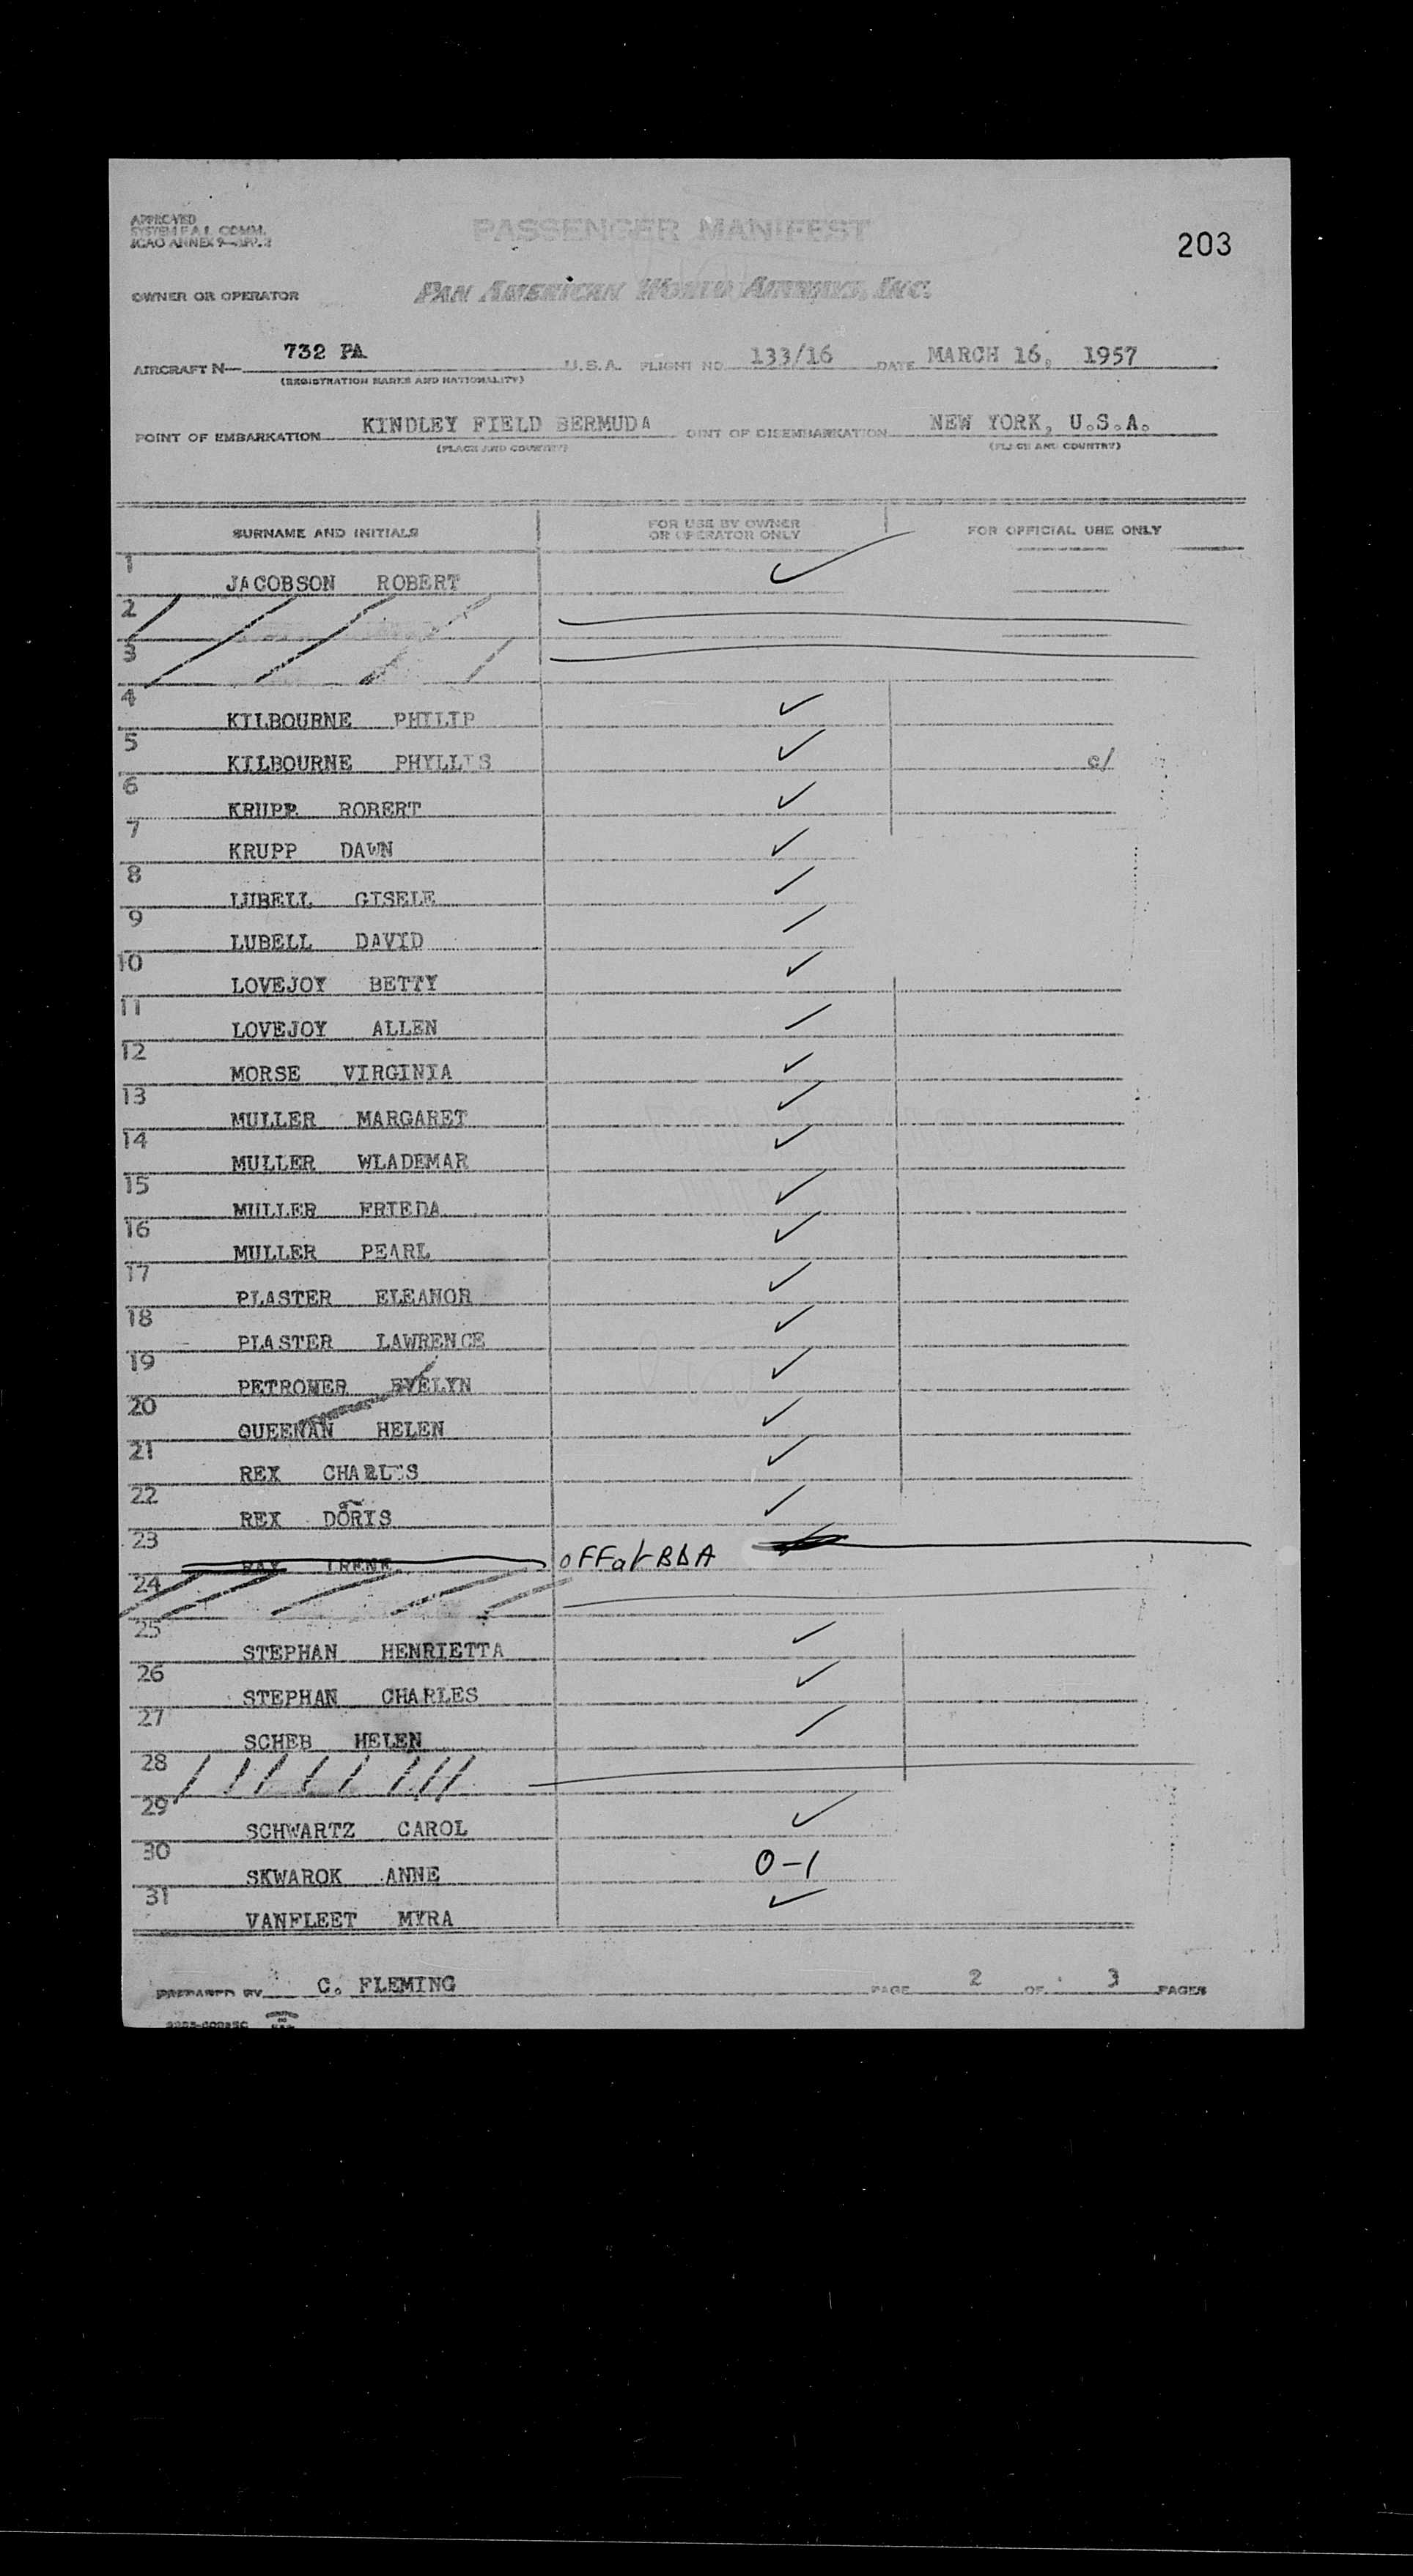 APPROVED
SYSTEM F.A.L. COMM.
ICAO ANNEX 9—APP. 3
PASSENGER MANIFEST
203
OWNER OR OPERATOR PAN AMERICAN WORLD AIRWAYS, INC.
AIRCRAFT N— 732 PA U.S.A. FLIGHT NO. 133/16 DATE MARCH 16, 1957
(REGISTRATION MARKS AND NATIONALITY)
POINT OF EMBARKATION KINDLEY FIELD BERMUDA OINT OF DISEMBARKATION NEW YORK, U.S.A.
(PLACE AND COUNTRY) (PLACE AND COUNTRY)
SURNAME AND INITIALS FOR USE BY OWNER OR OPERATOR ONLY FOR OFFICIAL USE ONLY
1 JACOBSON ROBERT ✓
2
3
4 KILBOURNE PHILIP ✓
5 KILBOURNE PHYLLIS ✓ c/
6 KRUPP ROBERT ✓
7 KRUPP DAWN ✓
8 LUBELL GISELE ✓
9 LUBELL DAVID ✓
10 LOVEJOY BETTY ✓
11 LOVEJOY ALLEN ✓
12 MORSE VIRGINIA ✓
13 MULLER MARGARET ✓
14 MULLER WLADEMAR ✓
15 MULLER FRIEDA ✓
16 MULLER PEARL ✓
17 PLASTER ELEANOR ✓
18 PLASTER LAWRENCE ✓
19 PETROWER EVELYN ✓
20 QUEENAN HELEN ✓
21 REX CHARLES ✓
22 REX DORIS ✓
23 RAY IRENE OFF at BDA
24
25 STEPHAN HENRIETTA ✓
26 STEPHAN CHARLES ✓
27 SCHEB HELEN ✓
28
29 SCHWARTZ CAROL ✓
30 SKWAROK ANNE 0-1
31 VANFLEET MYRA ✓
PREPARED BY C. FLEMING PAGE 2 OF 3 PAGES